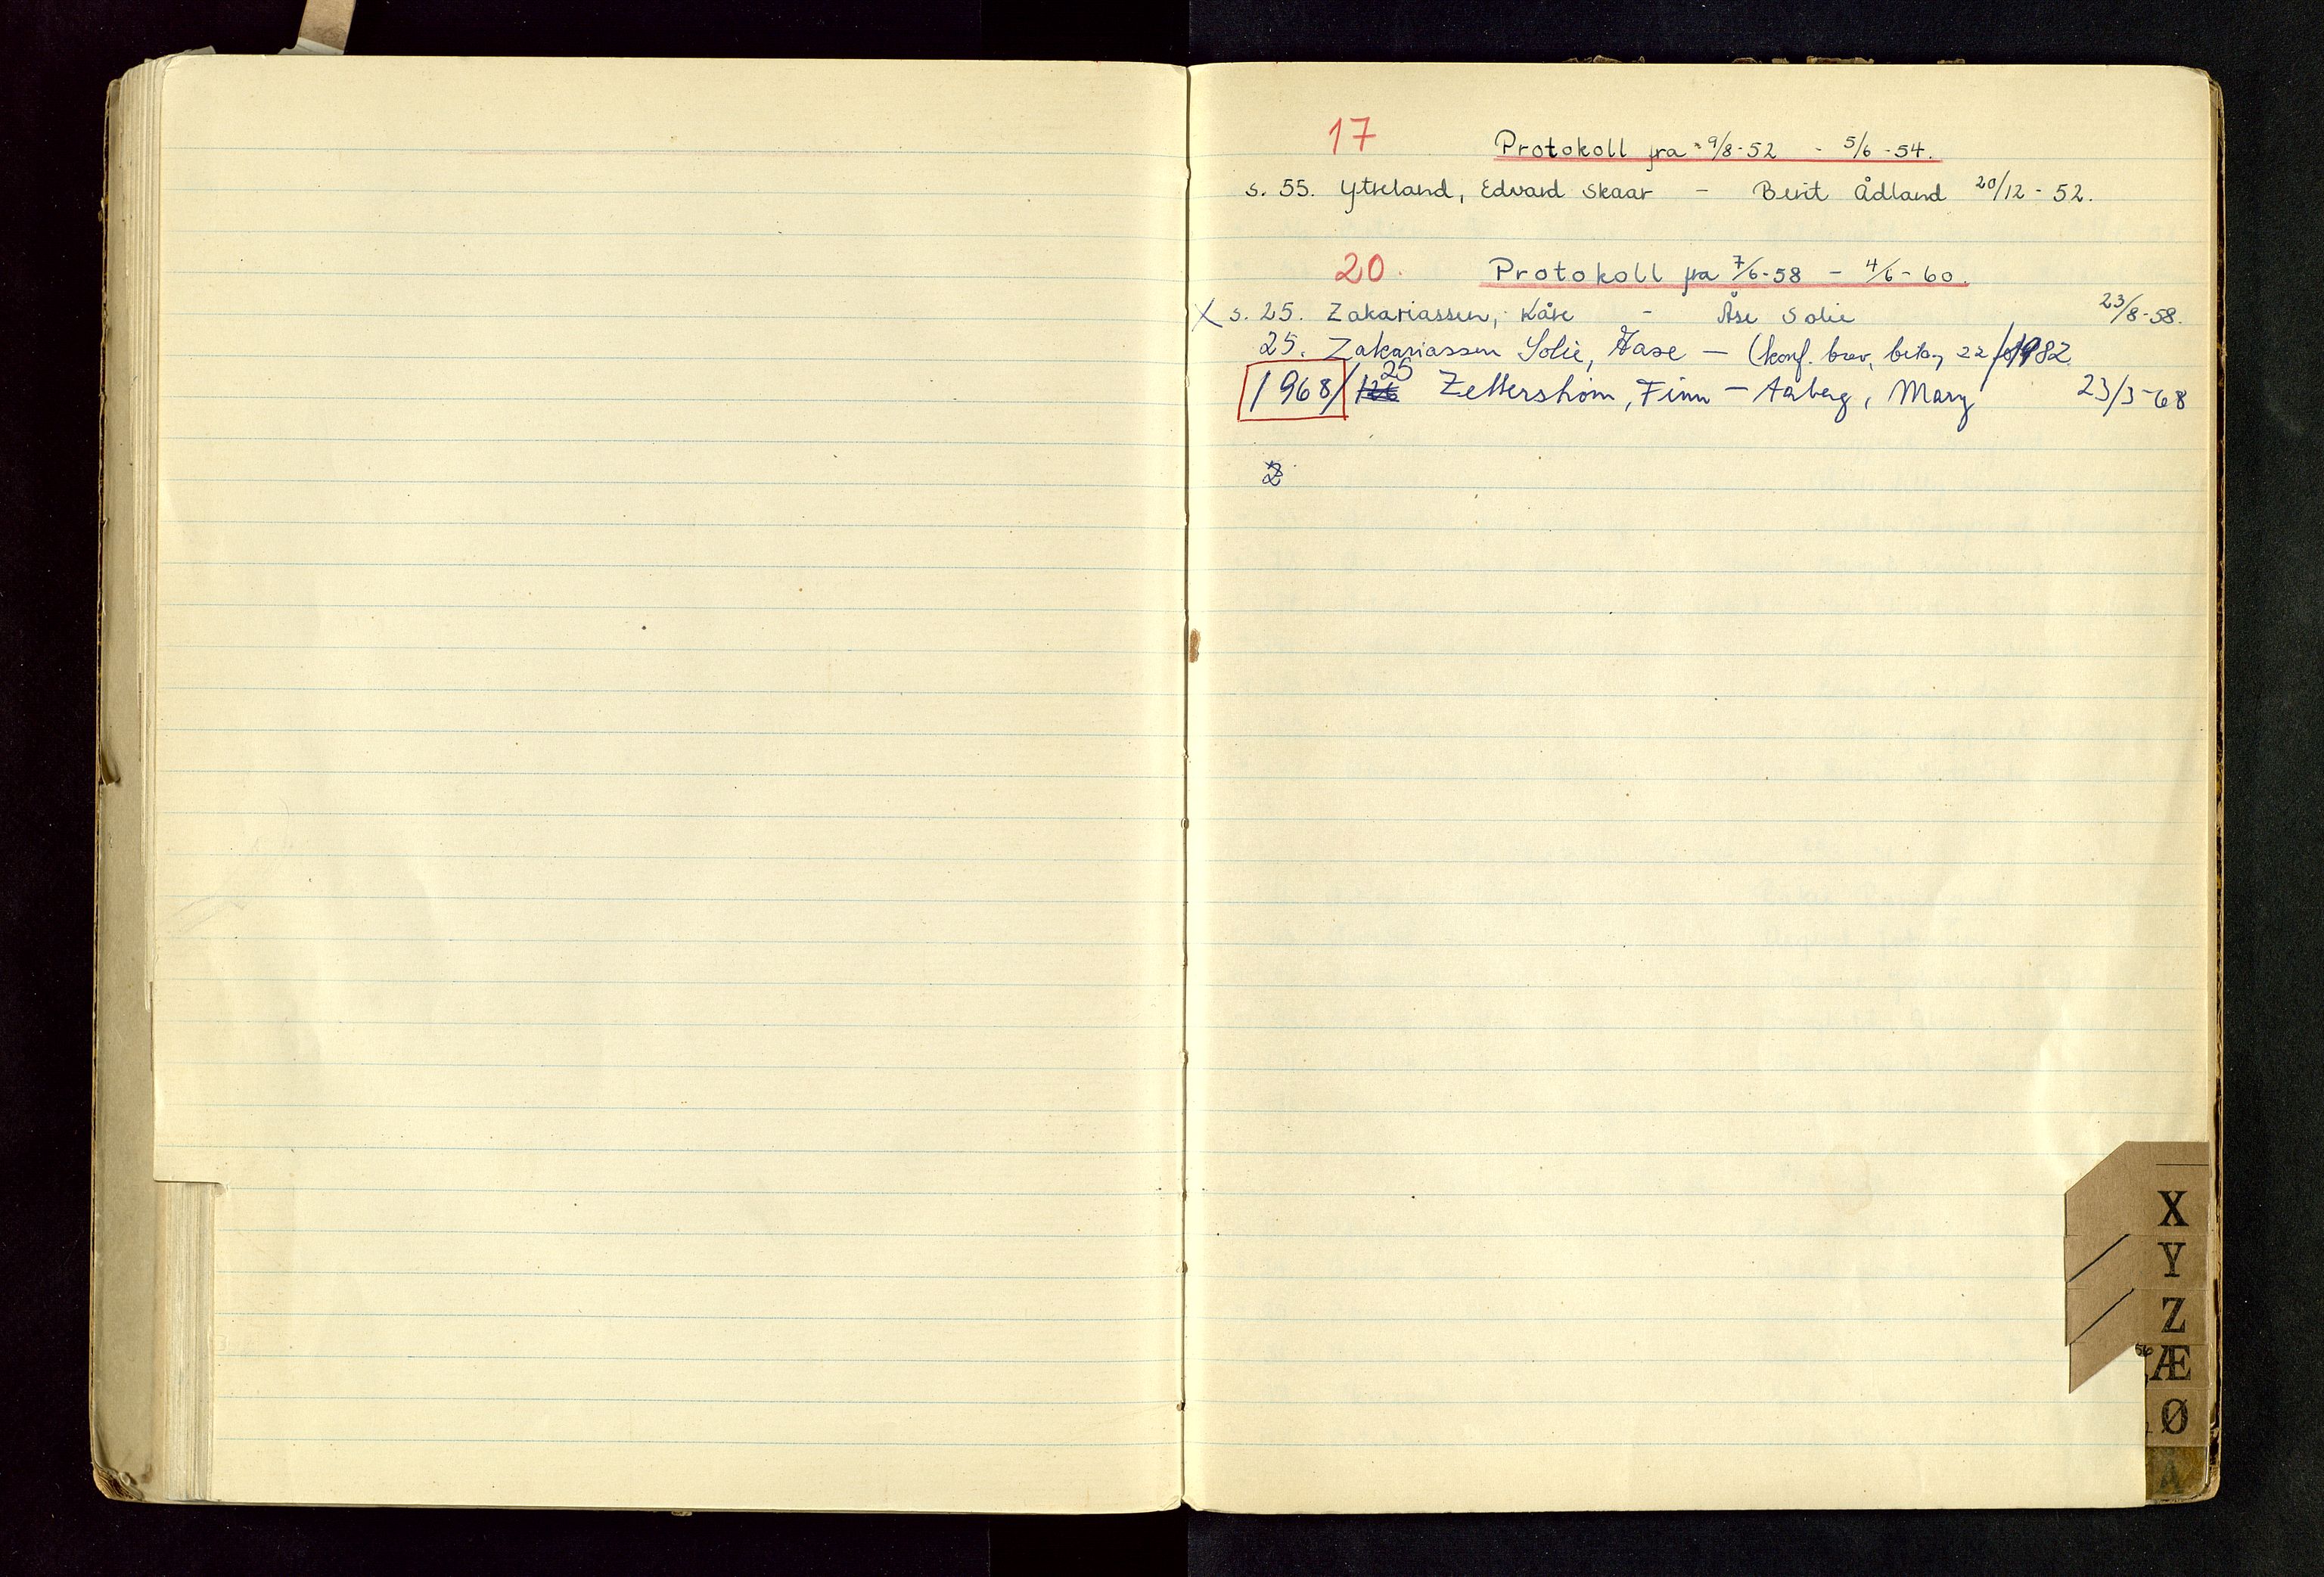 17 Protokoll fra 9/8-52 - 5/6-54.
s. 55. Ytreland, Edvard Skaar - Berit Ådland 20/12-52.
20. Protokoll fra 7/6-58 - 4/6-60.
X s. 25. Zakariassen, Kåre - Åse Solie 23/8-58.
25. Zakariassen Solie, Aase - (konf. brev, bet. 22/ 1982
1968/ 25 Zetterstrøm, Finn - Aaberg, Mary 23/3-68
X
Y
Z
Æ
Ø
Å